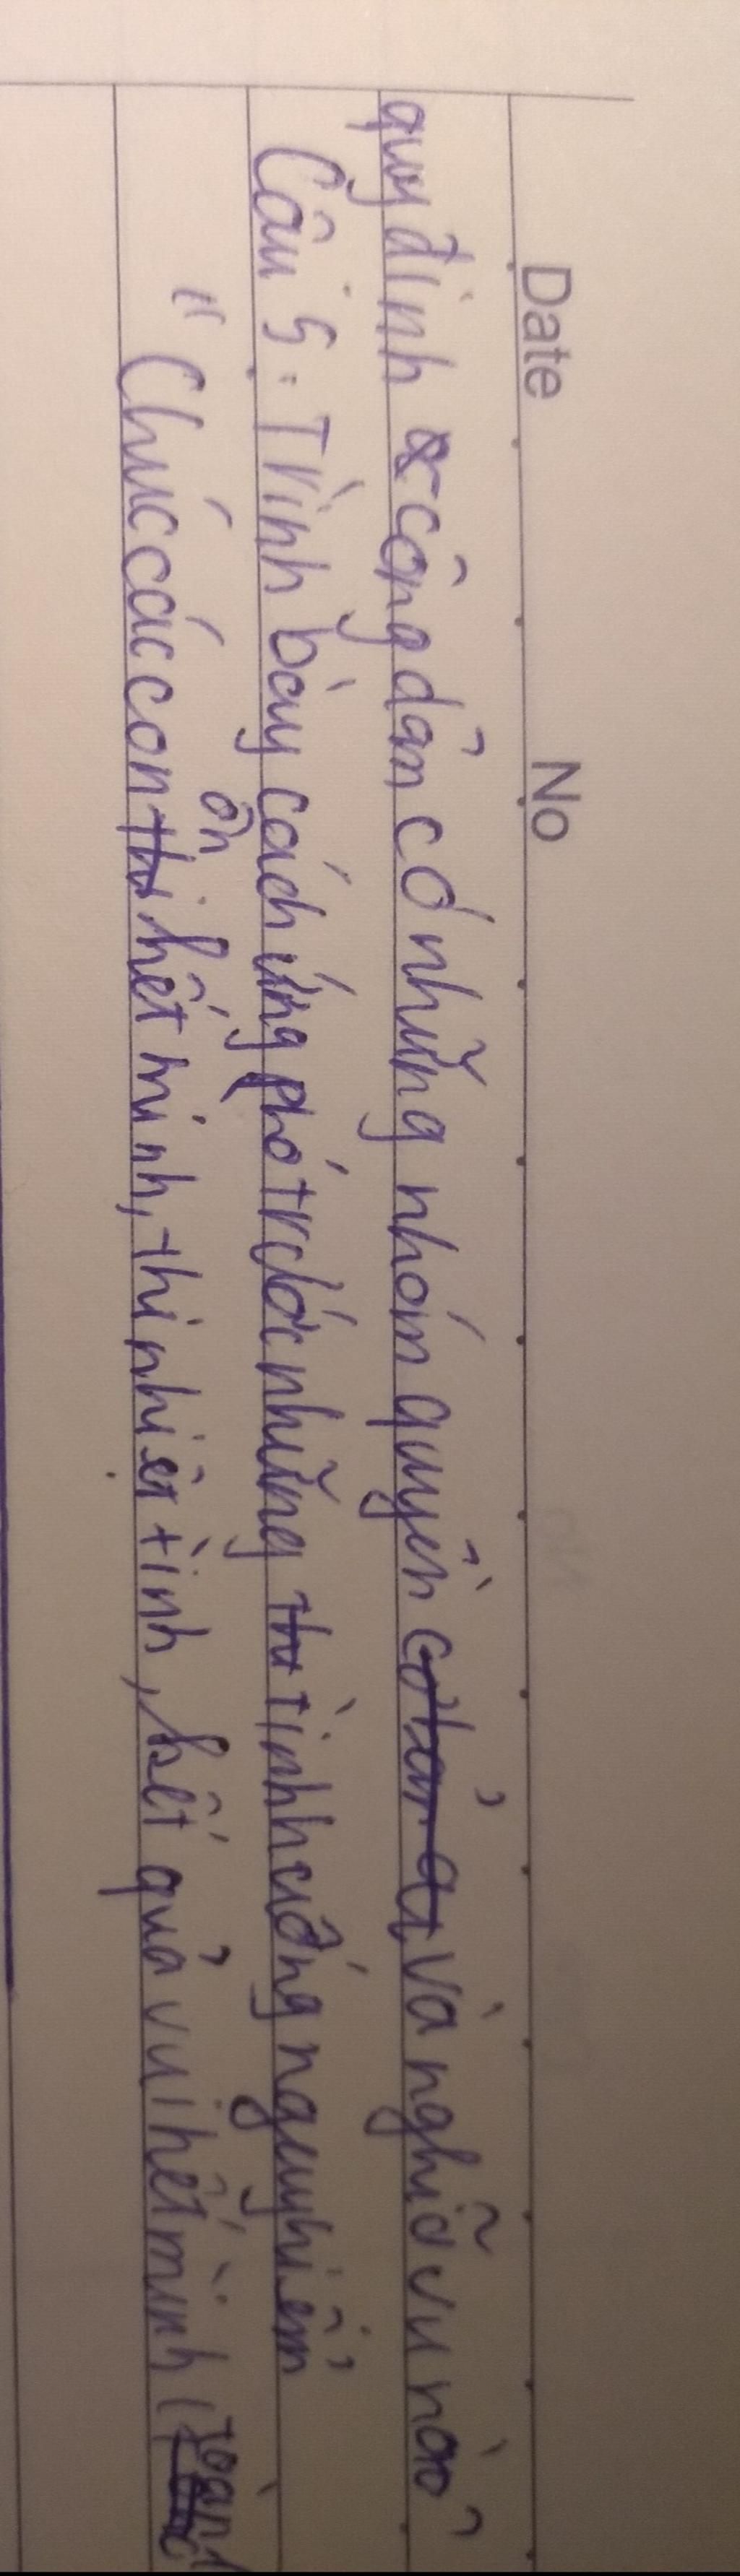 Date No
quy định công dân có những nhóm quyền và nghĩa vụ nào?
Câu 5: Trình bày cách ứng phó trước những tình huống nguy hiểm
"Chúc các con ôn hết mình, thi nhiệt tình, kết quả vui hết mình